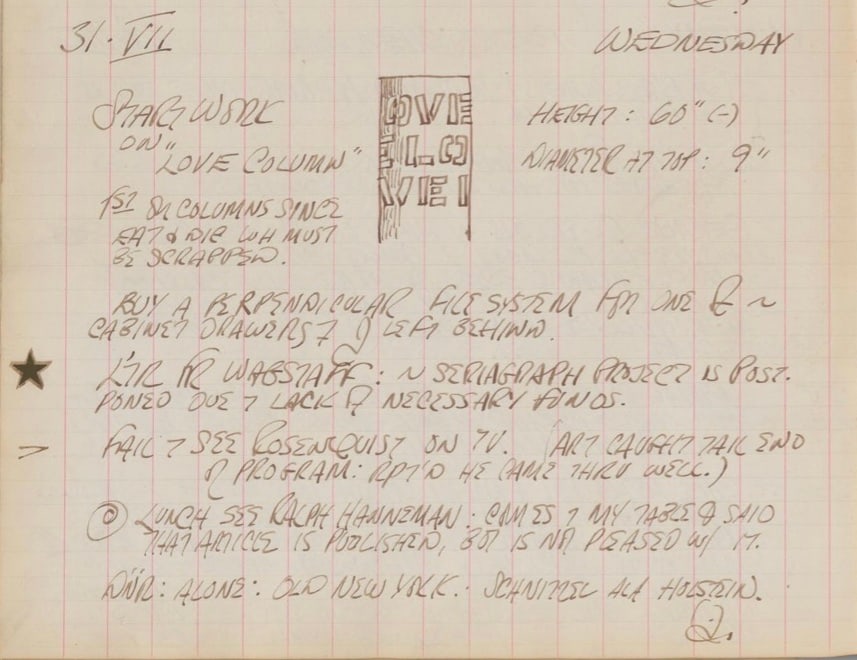 31·VII WEDNESDAY
START WORK
ON
"LOVE COLUMN"
OVE
E LO
VE
HEIGHT: 60" (-)
DIAMETER AT TOP: 9"
1ST COLUMNS SINCE
EAT & DIE WH MUST
BE SCRAPPED.
BUY A PERPENDICULAR FILE SYSTEM FOR ONE
CABINET DRAWERS LEFT BEHIND.
L'TR FR WAGSTAFF: ~ SERIAGRAPH PROJECT IS POST-
PONED DUE T LACK OF NECESSARY FUNDS.
FAIL T SEE ROSENQUIST ON TV. (ART CAUGHT TAIL END
OF PROGRAM: RPT'D HE CAME THRU WELL.)
LUNCH SEE RALPH HANNEMAN: COMES T MY TABLE & SAID
THAT ARTICLE IS PUBLISHED, BUT IS NOT PLEASED W/ IT.
DNR: ALONE: OLD NEW YORK: SCHNITZEL ALA HOLSTEIN.